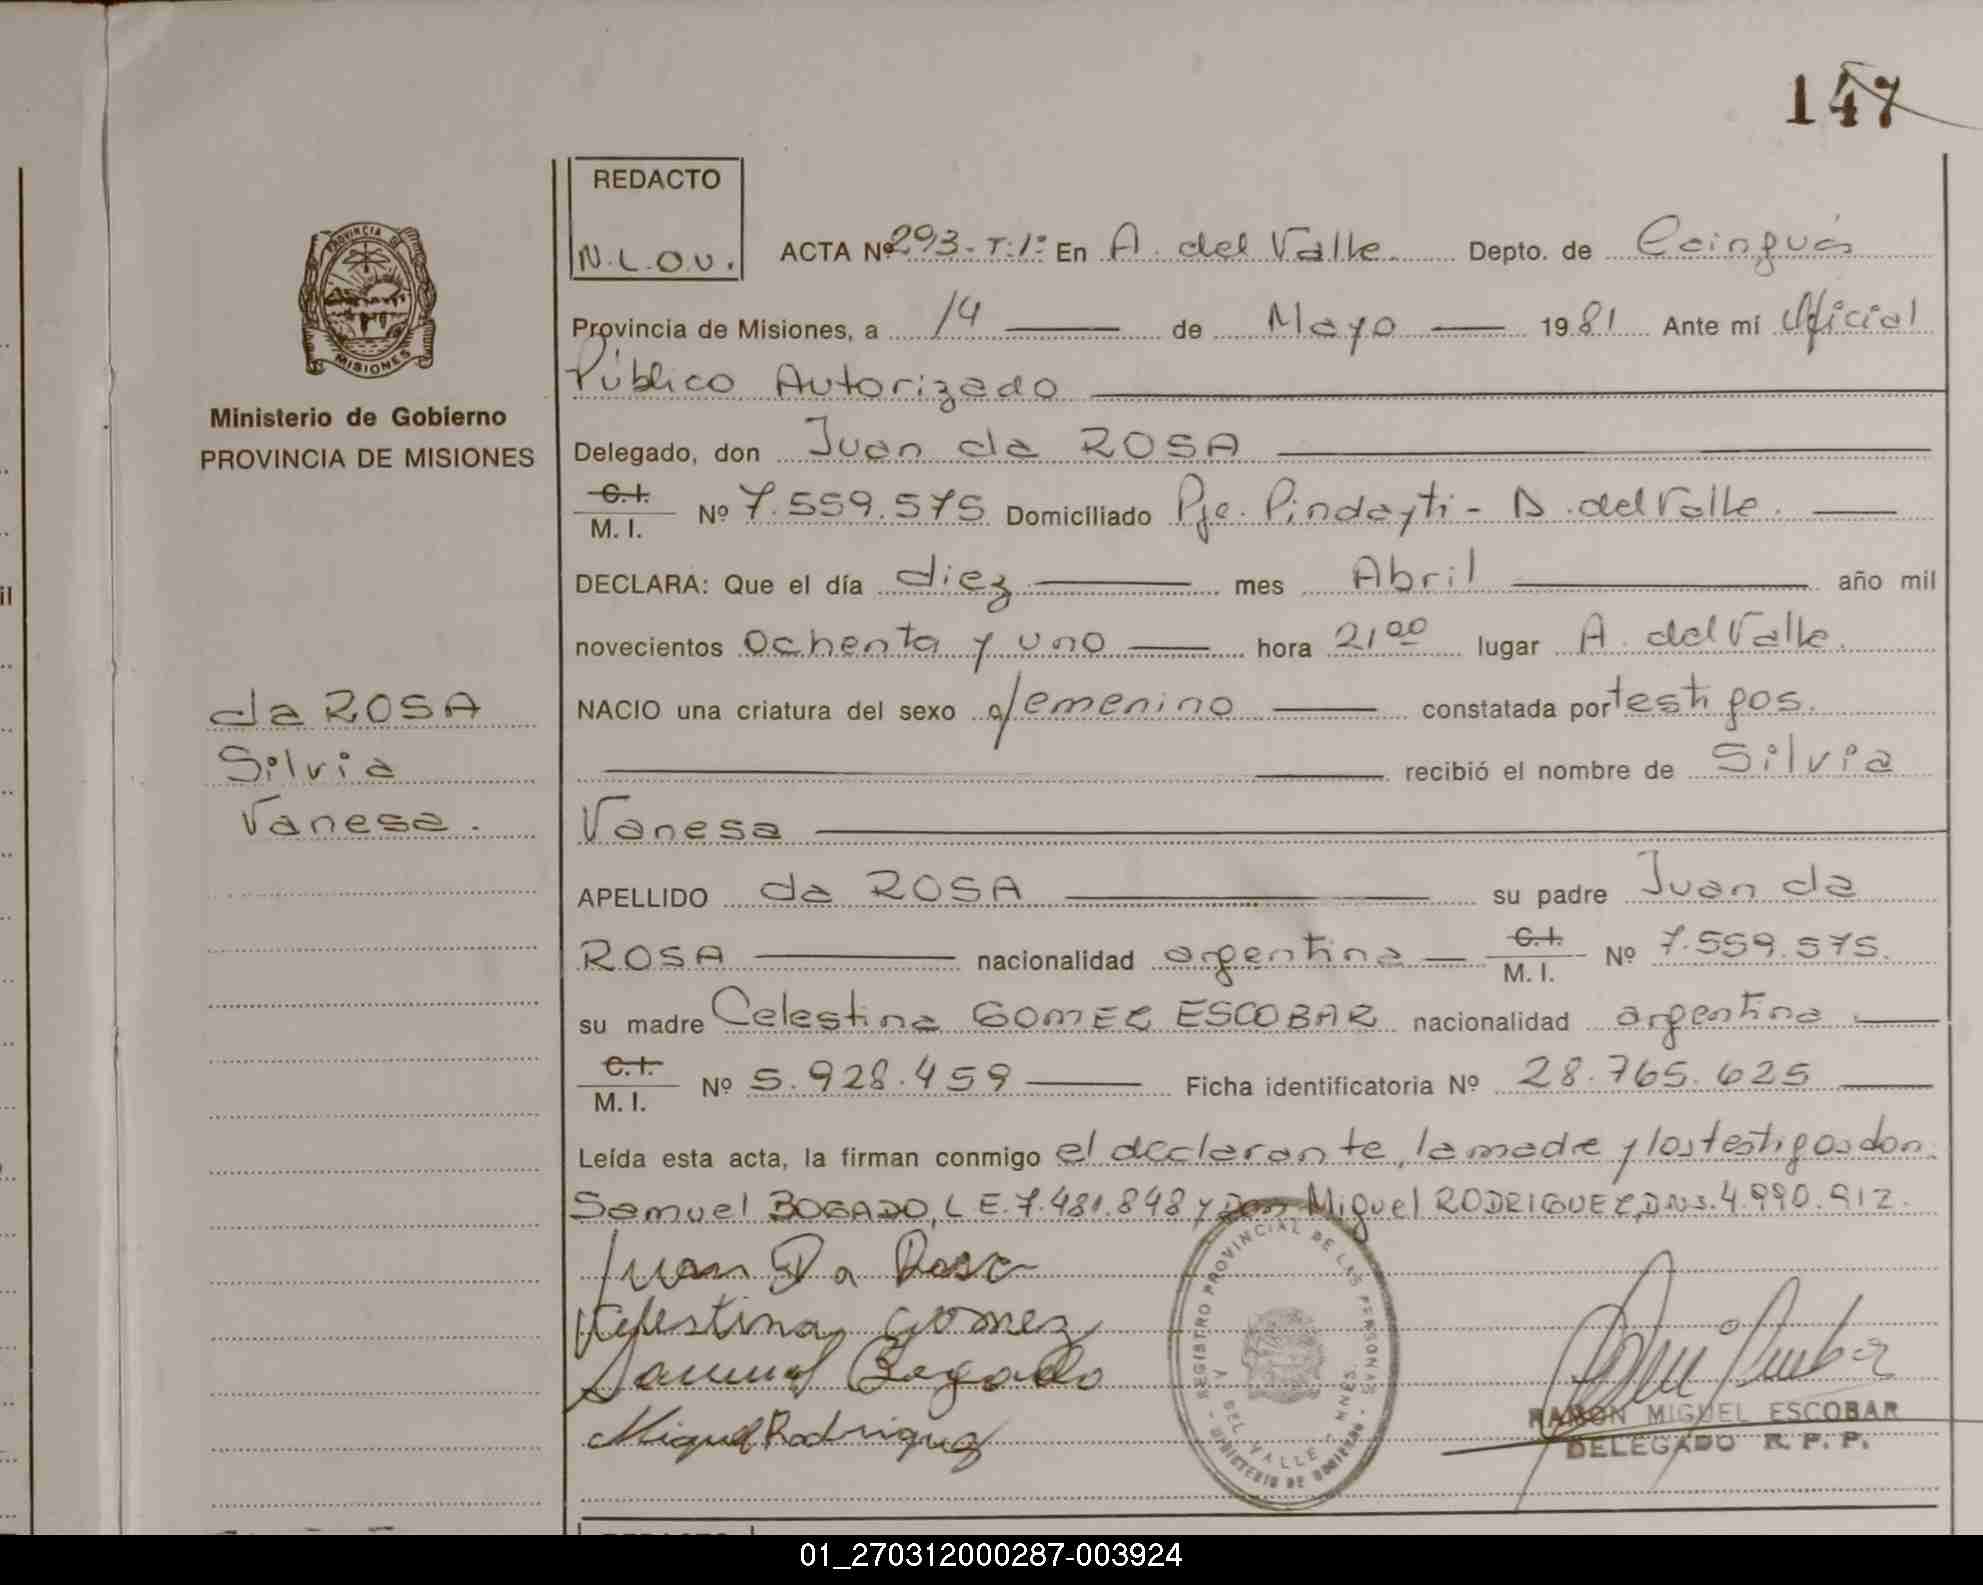 147
REDACTO
N.L.O.V.
ACTA Nº 293-T:1º En A. del Valle. Depto. de Cainguás
PROVINCIA DE
MISIONES
Provincia de Misiones, a 14 de Mayo 1981 Ante mí Oficial
Público Autorizado
Ministerio de Gobierno
PROVINCIA DE MISIONES
Delegado, don Juan da ROSA
C.I.
M. I. Nº 7.559.575 Domiciliado Pje. Pindayti - A. del Valle.
DECLARA: Que el día diez mes Abril año mil
novecientos ochenta y uno hora 21⁰⁰ lugar A. del Valle.
NACIO una criatura del sexo femenino constatada por testigos.
recibió el nombre de Silvia
Vanesa
da ROSA
Silvia
Vanesa.
APELLIDO da ROSA su padre Juan da
ROSA nacionalidad argentina C.I. M. I. Nº 7.559.575.
su madre Celestina GOMEZ ESCOBAR nacionalidad argentina
C.I.
M. I. Nº 5.928.459 Ficha identificatoria Nº 28.765.625
Leída esta acta, la firman conmigo el declarante, la madre y los testigos don
Samuel BOGADO, L E. 7.481.848 y Don Miguel RODRIGUEZ, D.N.I. 4.990.912.
Juan Da Rosa
Celestina Gomez
Samuel Bogado
Miguel Rodriguez
REGISTRO PROVINCIAL DE LAS PERSONAS
A DEL VALLE - MNES.
MINISTERIO DE GOBIERNO
RAMON MIGUEL ESCOBAR
DELEGADO R. P. P.
01_270312000287-003924